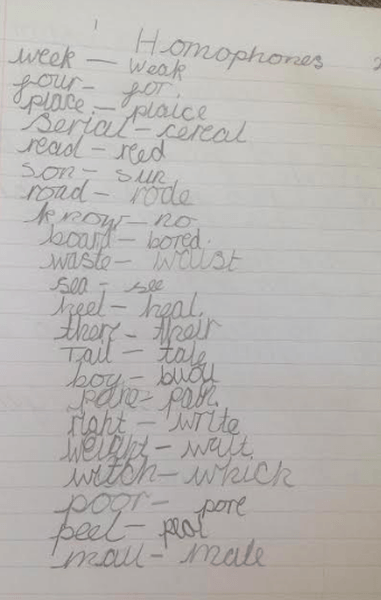 Homophones
week — weak
four - for.
place - plaice
Serial - cereal
read - reed
son - sun
road - rode
know - no
board - bored.
waste - waist
sea - see
heel - heal.
there - their
Tail - tale
boy - buoy
pane - pain.
right - write
weight - wait.
witch - which
poor - pore
peel - peal
mail - male